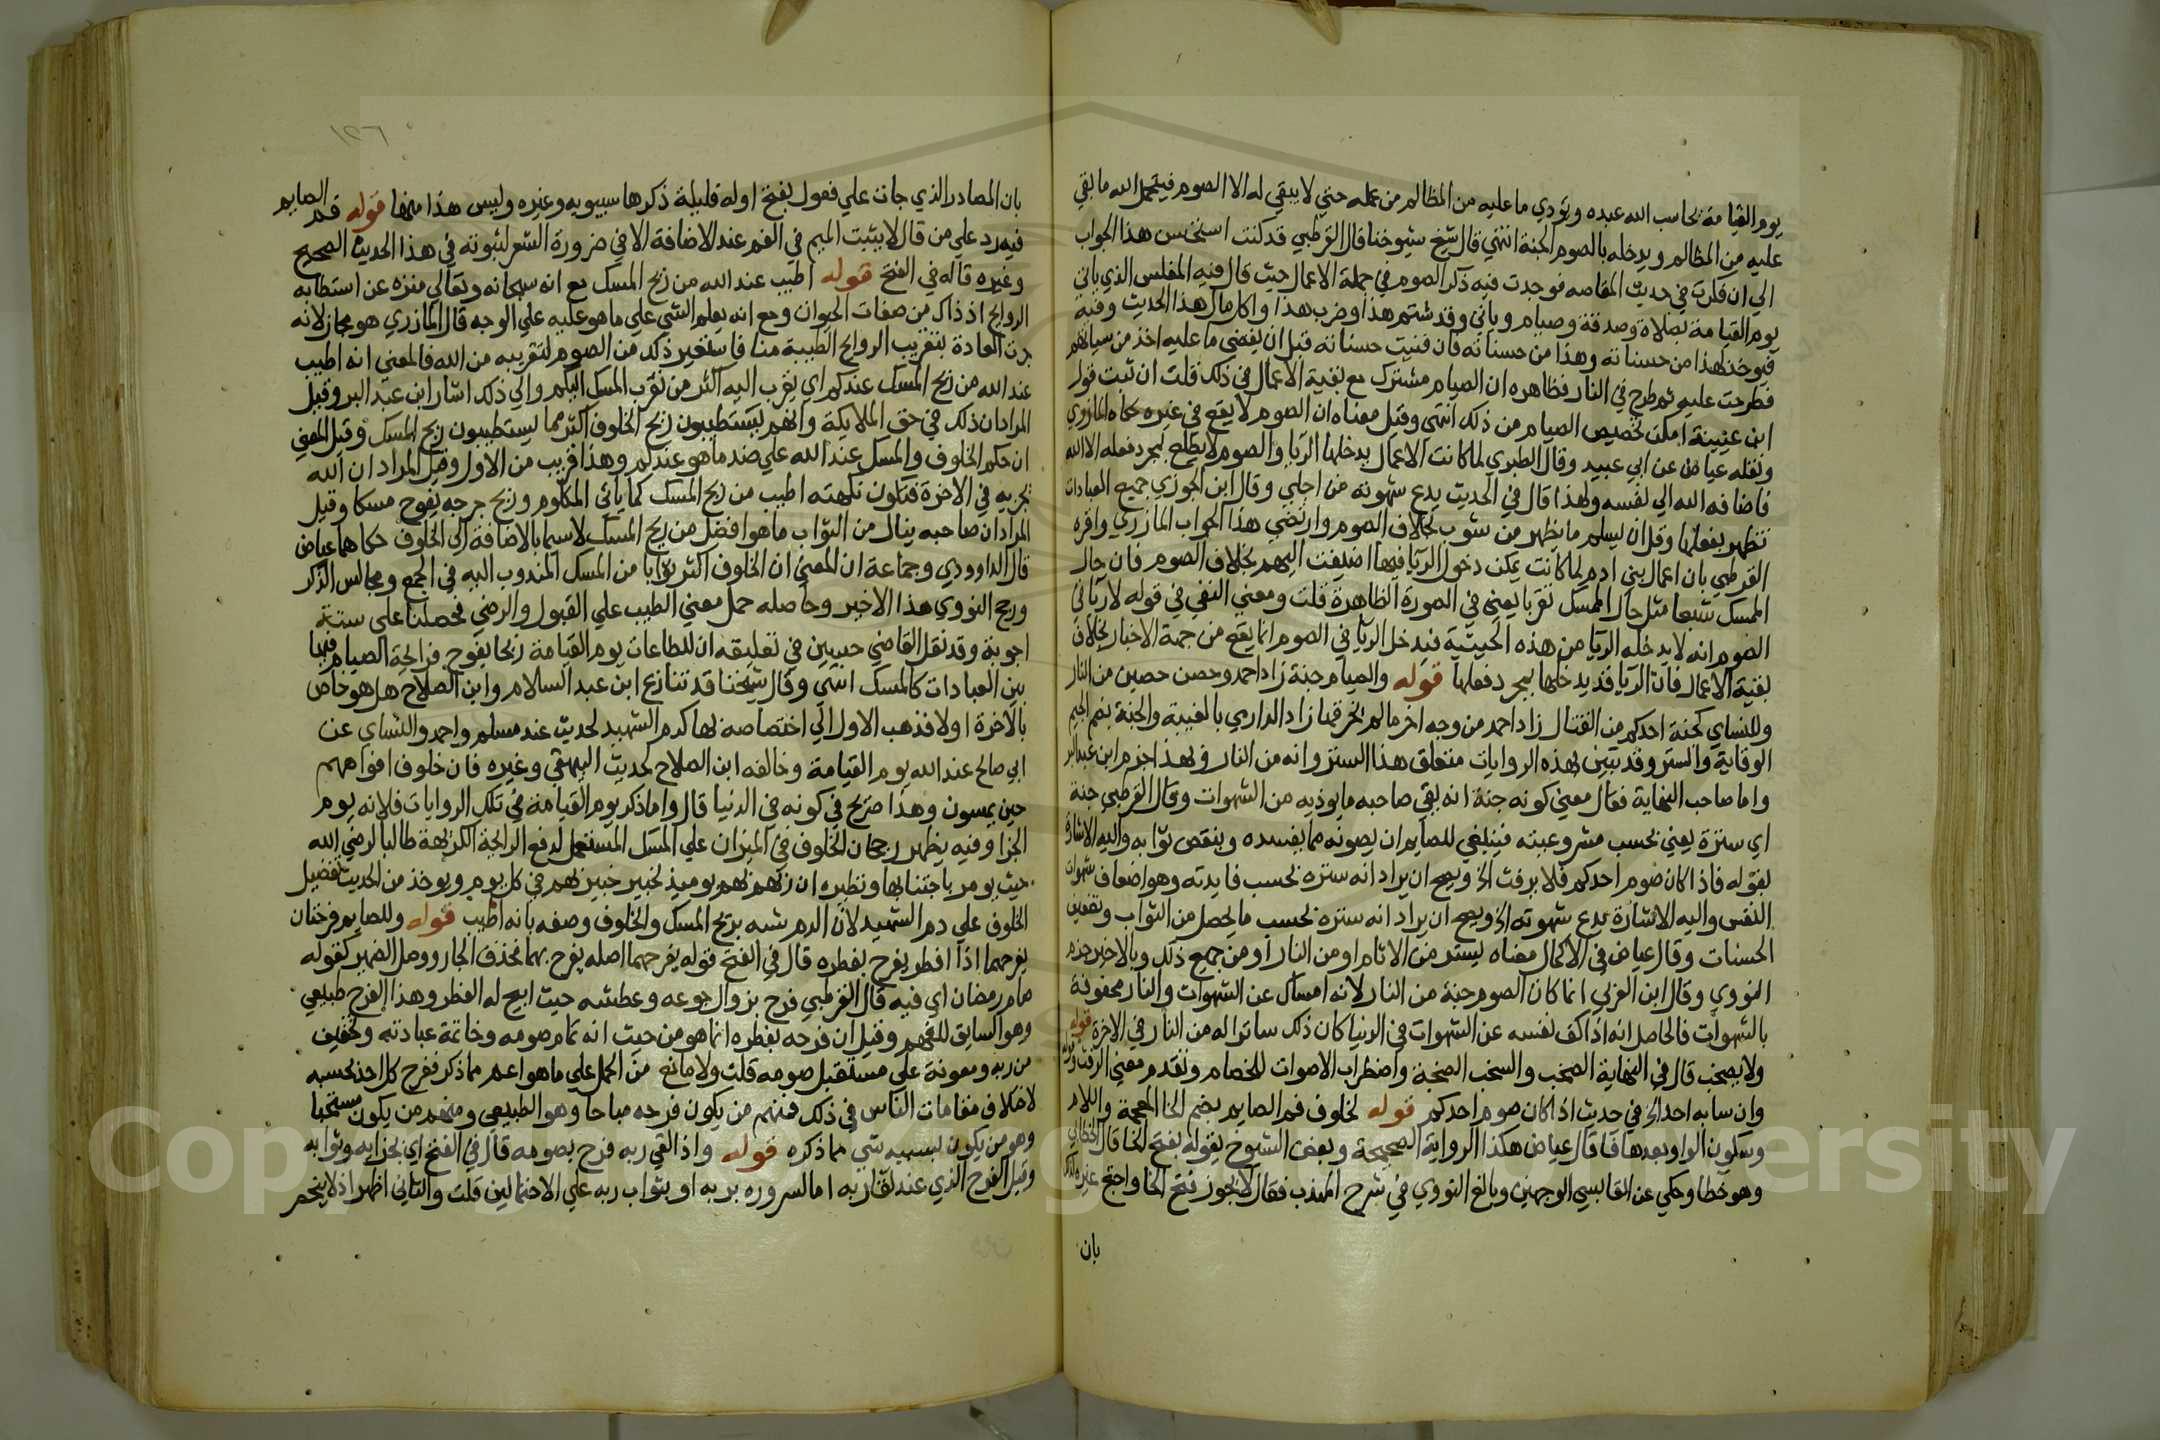 يوم القيامة يحاسب الله عبده ويؤدي ما عليه من المظالم من عمله حتى لا يبقي له الا الصوم فيتحمل الله ما بقي
عليه من المظالم ويدخله بالصوم الجنة انتهي قال شيخ شيوخنا قال القرطبي قد كنت استحسن هذا الجواب
الي ان فكرت في حديث المقاصه فوجدت فيه ذكر الصوم في جملة الاعمال حيث قال فيه المفلس الذي ياتي
يوم القيامة بصلاة وصدقة وصيام وياتي وقد شتم هذا وضرب هذا واكل مال هذا الحديث وفيه
فيوخذ لهذا من حسناته وهذا من حسناته فان فنيت حسناته قبل ان يقضي ما عليه اخذ من سياتهم
فطرحت عليه ثم طرح في النار فظاهره ان الصيام مشترك مع بقية الاعمال في ذلك قلت ان ثبت قول
ابن عيينة امكن تخصيص الصيام من ذلك انتهى وقيل معناه ان الصوم لا يقع في غيره حكاه المازري
ونقله عياض عن ابي عبيد وقال الطبري لما كانت الاعمال يدخلها الريا والصوم لا يطلع بمجرد فعله الا الله
فاضافه الله الي نفسه ولهذا قال في الحديث يدع شهوته من اجلي وقال ابن الجوزي جميع العبادات
تظهر بفعلها وقل ان يسلم ما يظهر من شوب بخلاف الصوم وارتضي هذا الجواب المازري واقره
القرطبي بان اعمال بني ادم لما كانت يمكن دخول الريا فيها اضيفت اليهم بخلاف الصوم فان حال
الممسك شبعا مثل حال الممسك تقربا يعني في الصورة الظاهرة قلت ومعني النفي في قوله لا ريا في
الصوم انه لا يدخله الريا من هذه الحيثية فيدخل الريا في الصوم انما يقع من جهة الاخبار بخلاف
بقية الاعمال فان الريا قد يدخلها بمجرد فعلها قوله والصيام جنة زاد احمد وحصن حصين من النار
وللنساي كجنة احدكم من القتال زاد احمد من وجه اخر ما لم يخرقها زاد الدارمي بالغيبة والجنة بضم الجيم
الوقاية والستر وقد تبين بهذه الروايات متعلق هذا الستر وانه من النار وبهذا جزم ابن عبد البر
واما صاحب النهاية فقال معني كونه جنة انه يقي صاحبه ما يوذيه من الشهوات وقال القرطبي جنة
اي سترة يعني بحسب مشروعيته فينبغي للصايم ان يصونه مما يفسده وينقص ثوابه واليه الاشارة
بقوله فاذا كان صوم احدكم فلا يرفث الخ ويصح ان يراد انه ستره بحسب فايدته وهو اضعاف شهوات
النفس واليه الاشارة يدع شهوته الخ ويصح ان يراد انه ستره بحسب ما يحصل من الثواب وتضعيف
الحسنات وقال عياض في الاكمال معناه يستر من الاثام او من النار او من جميع ذلك وبالاخير جزم
النووي وقال ابن العربي انما كان الصوم جنة من النار لانه امساك عن الشهوات والنار محفوفة
بالشهوات فالحاصل انه اذا كف نفسه عن الشهوات في الدنيا كان ذلك ساترا له من النار في الاخرة قوله
ولا يصخب قال في النهاية الصخب والسخب الضجة واضطراب الاصوات للخصام وتقدم معني الرفث وقوله
وان سابه احد الخ في حديث اذا كان صوم احدكم قوله لخلوف فم الصايم بضم الخا المعجمة واللام
وسكون الواو بعدها فا قال عياض هكذا الرواية الصحيحة وبعض الشيوخ يقوله بفتح الخا قال الخطابي
وهو خطا وحكي عن القابسي الوجهين وبالغ النووي في شرح المهذب فقال لا يجوز فتح الخا واحتج غيره لذلك
بان
بان المصادر الذي جات علي فعول بفتح اوله قليلة ذكرها سيبويه وغيره وليس هذا منها قوله فم الصايم
فيه رد علي من قال لا يثبت الميم في الفم عند الاضافة الا في ضرورة الشعر لثبوته في هذا الحديث الصحيح
وغيره قاله في الفتح قوله اطيب عند الله من ريح المسك مع انه سبحانه وتعالي منزه عن استطابه
الروايح اذ ذاك من صفات الحيوان ومع انه يعلم الشي علي ما هو عليه علي الوجه قال المازري هو مجاز لانه
جرت العادة بتقريب الروايح الطيبة منا فاستعير ذلك من الصوم لتقريبه من الله فالمعني انه اطيب
عند الله من ريح المسك عندكم اي يقرب اليه اكثر من تقرب المسك اليكم والي ذلك اشار ابن عبد البر وقيل
المراد ان ذلك في حق الملايكة وانهم يستطيبون ريح الخلوف اكثر مما يستطيبون ريح المسك وقيل المعني
ان حكم الخلوف والمسك عند الله علي ضد ما هو عندكم وهذا قريب من الاول وقيل المراد ان الله
يجزيه في الاخرة فتكون نكهته اطيب من ريح المسك كما ياتي المكلوم وريح جرحه يفوح مسكا وقيل
المراد ان صاحبه ينال من الثواب ما هو افضل من ريح المسك لا سيما بالاضافة الي الخلوف حكاهما عياض
قال الداوودي وجماعة ان المعني ان الخلوف اكثر ثوابا من المسك المندوب اليه في الجمع ومجالس الذكر
ورجح النووي هذا الاخير وحاصله حمل معني الطيب علي القبول والرضي فحصلنا علي ستة
اجوبة وقد نقل القاضي حسين في تعليقه ان للطاعات يوم القيامة ريحا يفوح فرايحة الصيام فيها
بين العبادات كالمسك انتهي وقال شيخنا قد تنازع ابن عبد السلام وابن الصلاح هل هو خاص
بالاخرة او لا فذهب الاول الي اختصاصه بها كدم الشهيد لحديث عند مسلم واحمد والنساي عن
ابي صالح عند الله يوم القيامة وخالفه ابن الصلاح لحديث البيهقي وغيره فان خلوف افواههم
حين يمسون وهذا صريح في كونه في الدنيا قال واما ذكر يوم القيامة في تلك الروايات فلانه يوم
الجزا وفيه يظهر رجحان الخلوف في الميزان علي المسك المستعمل لدفع الرايحة الكريهة طالبا لرضي الله
حيث يومر باجتنابها ونظيره ان ربهم بهم يوميذ لخبير خبير بهم في كل يوم ويوخذ من الحديث تفضيل
الخلوف علي دم الشهيد لان الدم شبه بريح المسك والخلوف وصفه بانه اطيب قوله وللصايم فرحتان
يفرحهما اذا افطر يفرح بفطره قال في الفتح قوله يفرحهما اصله يفرح بهما فحذف الجار ووصل الضمير كقوله
صام رمضان اي فيه قال القرطبي فرح بزوال جوعه وعطشه حيث ابيح له الفطر وهذا الفرح طبيعي
وهو السابق للفهم وقيل ان فرحه بفطره انما هو من حيث انه تمام صومه وخاتمة عبادته وتخفيف
من ربه ومعونة علي مستقبل صومه قلت ولا مانع من الحمل علي ما هو اعم مما ذكر ففرح كل احد بحسبه
لاختلاف مقامات الناس في ذلك فمنهم من يكون فرحه مباحا وهو الطبيعي ومنهم من يكون مستحبا
وهو من يكون لسببه شي مما ذكره قوله واذا لقي ربه فرح بصومه قال في الفتح اي بجزايه وثوابه
وقيل الفرح الذي عند لقا ربه اما لسروره بربه او بثواب ربه علي الاحتمالين قلت والثاني اظهر اذ لا ينحصر